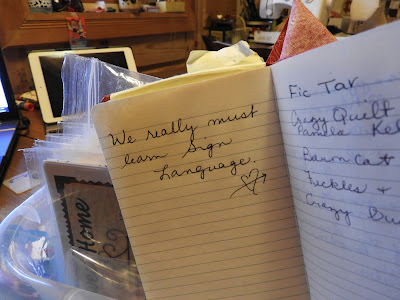 We really must
learn Sign
Language.
Home
Fic Tar
Crazy Quilt
Pamela Kel
Bam Cat
Tickles +
Crazy